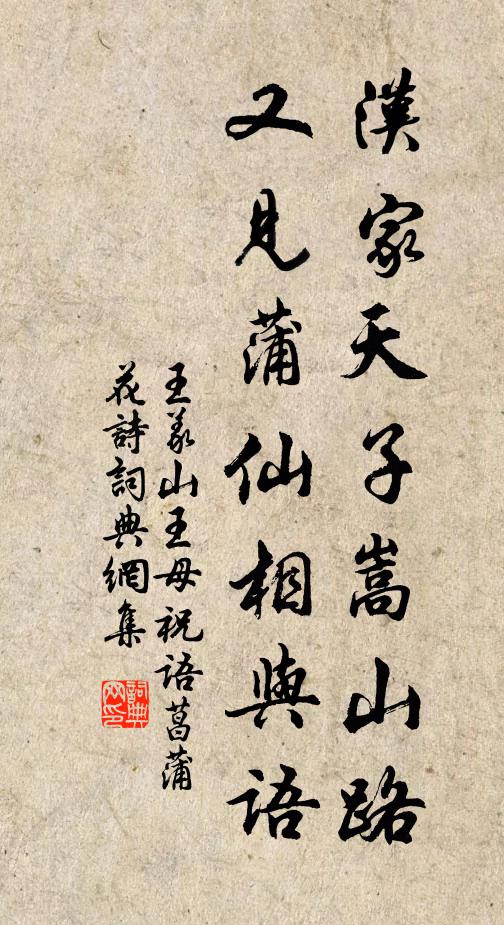 漢家天子嵩山路
又見蒲仙相與語
王義山王母祝語菖蒲
花詩詞典網集
詞典網印